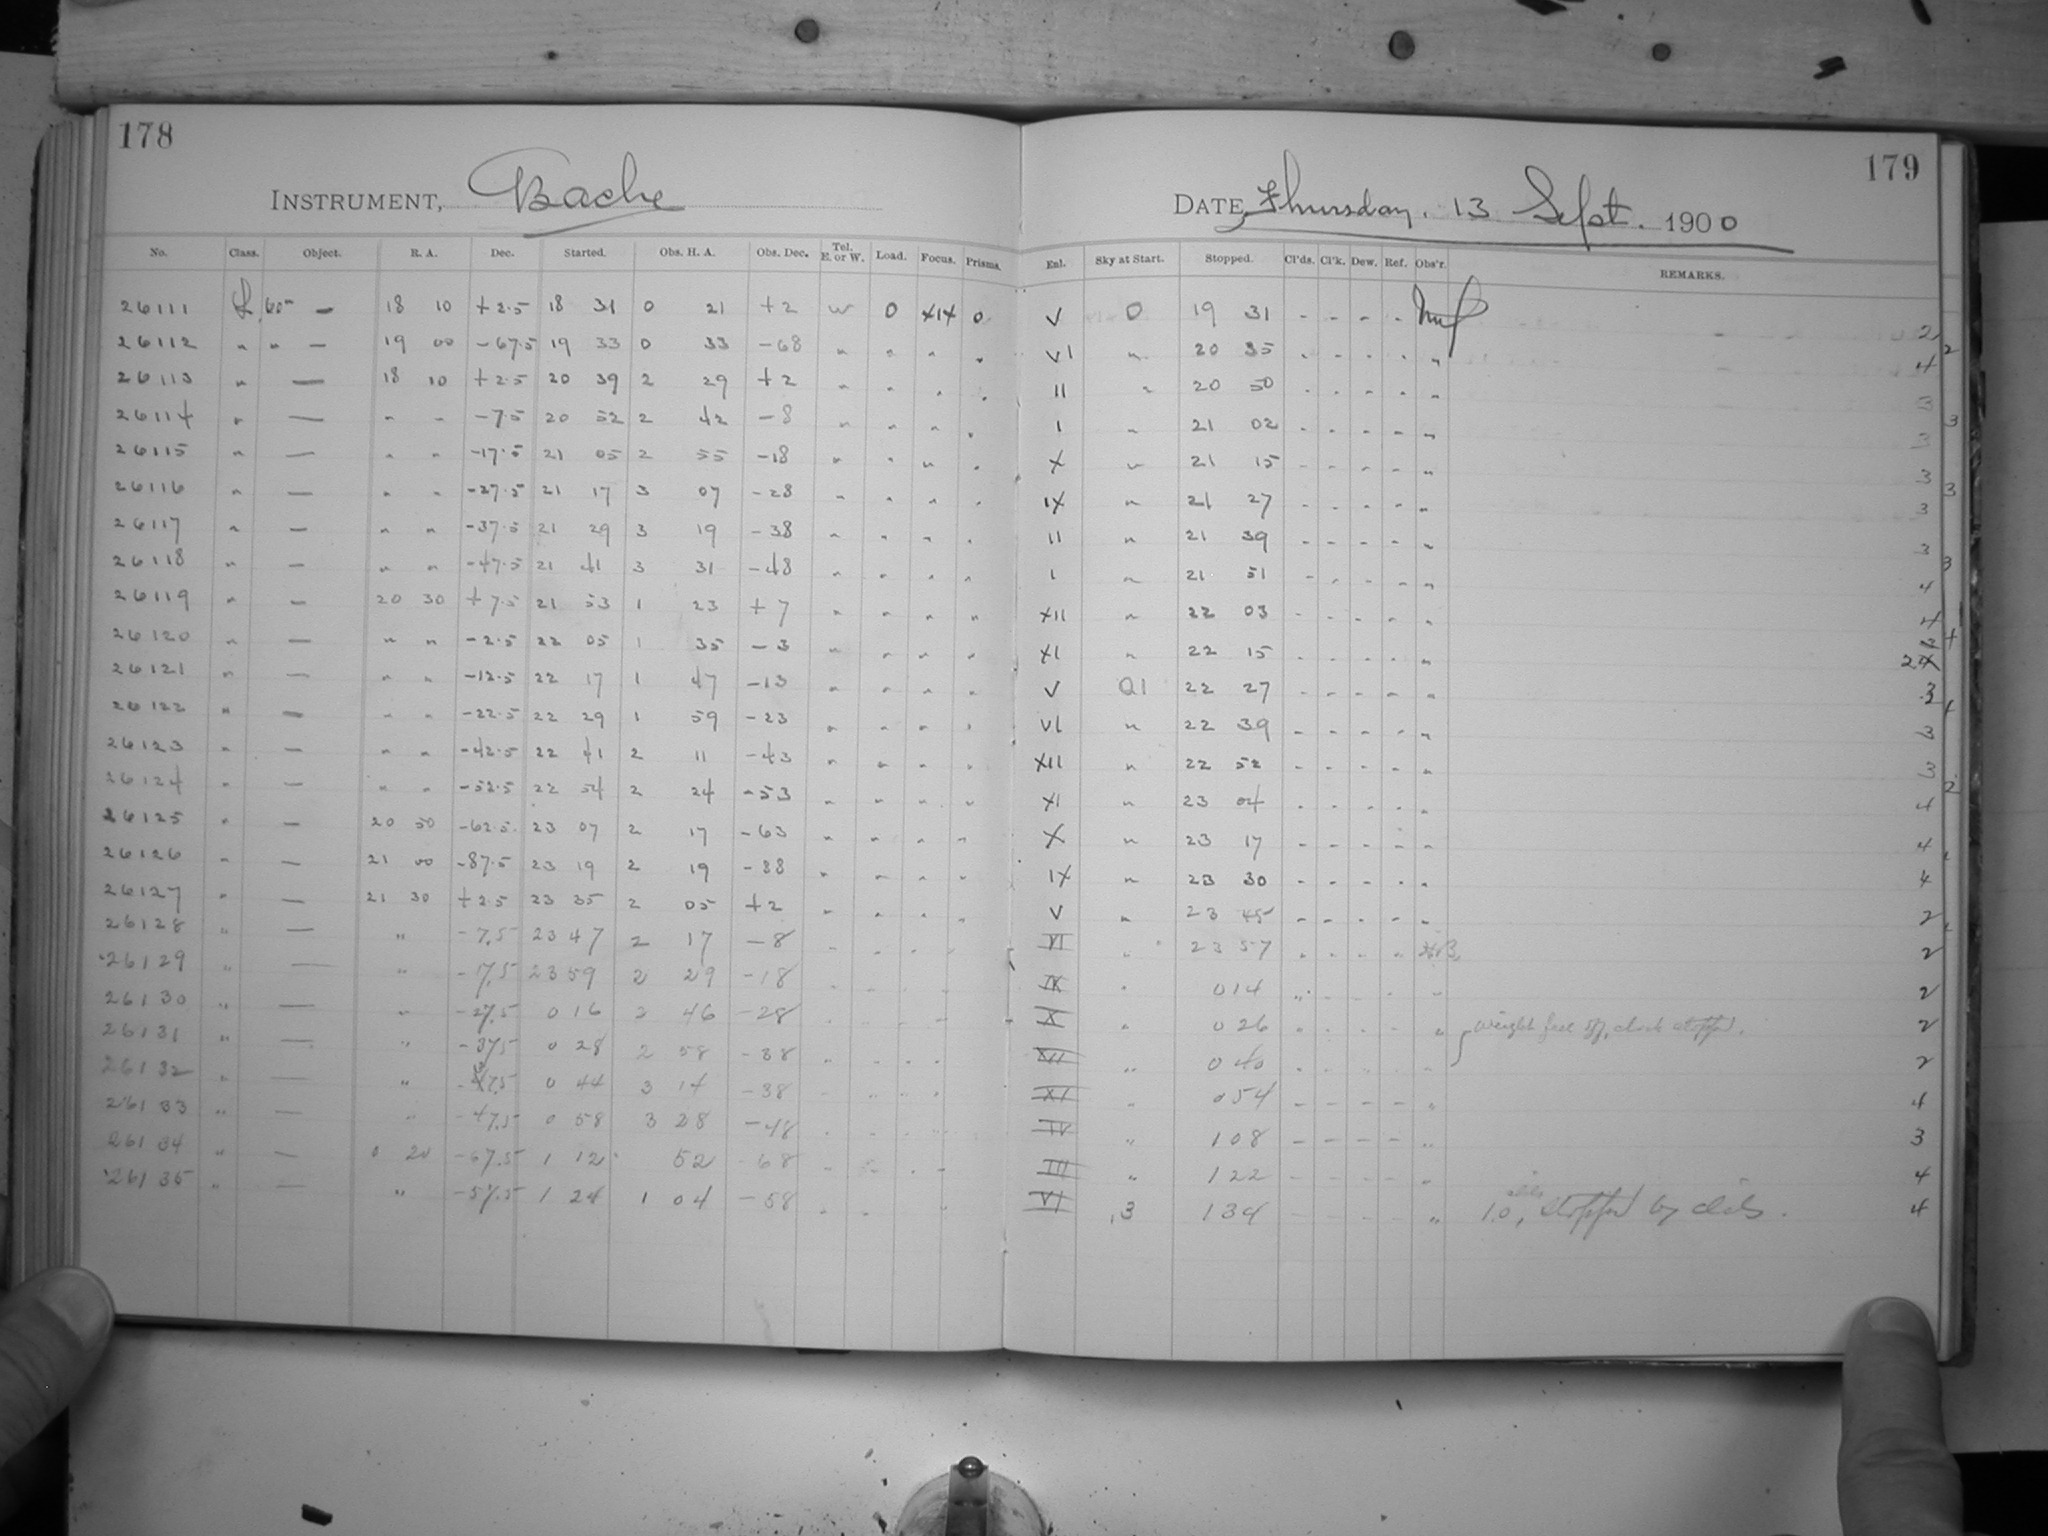 178
179
INSTRUMENT, Bache
DATE, Thursday. 13 Sept. 1900
No. Class. Object. R. A. Dec. Started. Obs. H. A. Obs. Dec. Tel. E. or W. Load. Focus. Prisms. Enl. Sky at Start. Stopped. Cl'ds. Cl'k. Dew. Ref. Obs'r. REMARKS.
26111 60m — 18 10 +2.5 18 31 0 21 +2 w 0 0 V 0 19 31 - - - - 2
26112 " " — 19 00 -67.5 19 33 0 33 -68 " " " " VI " 20 35 - - - - " 4
26113 " — 18 10 +2.5 20 39 2 29 +2 " " " " II " 20 50 - - - - " 3
26114 " — " " -7.5 20 52 2 42 -8 " " " " I " 21 02 - - - - " 3
26115 " — " " -17.5 21 05 2 55 -18 " " " " X " 21 15 - - - - " 3
26116 " — " " -27.5 21 17 3 07 -28 " " " " IX " 21 27 - - - - " 3
26117 " — " " -37.5 21 29 3 19 -38 " " " " II " 21 39 - - - - " 3
26118 " — " " -47.5 21 41 3 31 -48 " " " " I " 21 51 - - - - " 4
26119 " — 20 30 +7.5 21 53 1 23 +7 " " " " XII " 22 03 - - - - " 4
26120 " — " " -2.5 22 05 1 35 -3 " " " " XI " 22 15 - - - - " 2
26121 " — " " -12.5 22 17 1 47 -13 " " " " V 01 22 27 - - - - " 3
26122 " — " " -22.5 22 29 1 59 -23 " " " " VI " 22 39 - - - - " 3
26123 " — " " -42.5 22 41 2 11 -43 " " " " XII " 22 52 - - - - " 3
26124 " — " " -52.5 22 54 2 24 -53 " " " " XI " 23 04 - - - - " 4
26125 " — 20 50 -62.5 23 07 2 17 -63 " " " " X " 23 17 - - - - " 4
26126 " — 21 00 -87.5 23 19 2 19 -88 " " " " IX " 23 30 - - - - " 4
26127 " — 21 30 +2.5 23 35 2 05 +2 " " " " V " 23 45 - - - - " 2
26128 " — " -7.5 23 47 2 17 -8 " " " " VI " 23 57 " " " " 2
26129 " — " -17.5 23 59 2 29 -18 IX " 0 14 " 2
26130 " — " -27.5 0 16 2 46 -28 X " 0 26 " weight fell off, clock stopped. 2
26131 " — " -37.5 0 28 2 58 -38 XII " 0 40 " 2
26132 " — " 0 44 3 14 -38 XI " 0 54 - - - - " 4
26133 " — " -47.5 0 58 3 28 -48 IV " 1 08 - - - - " 3
26134 " — 0 20 -67.5 1 12 52 -68 III " 1 22 - - - - " 4
26135 " — " -57.5 1 24 1 04 -58 VI .3 1 34 - - - - " 1.0, stopped by clds. 4